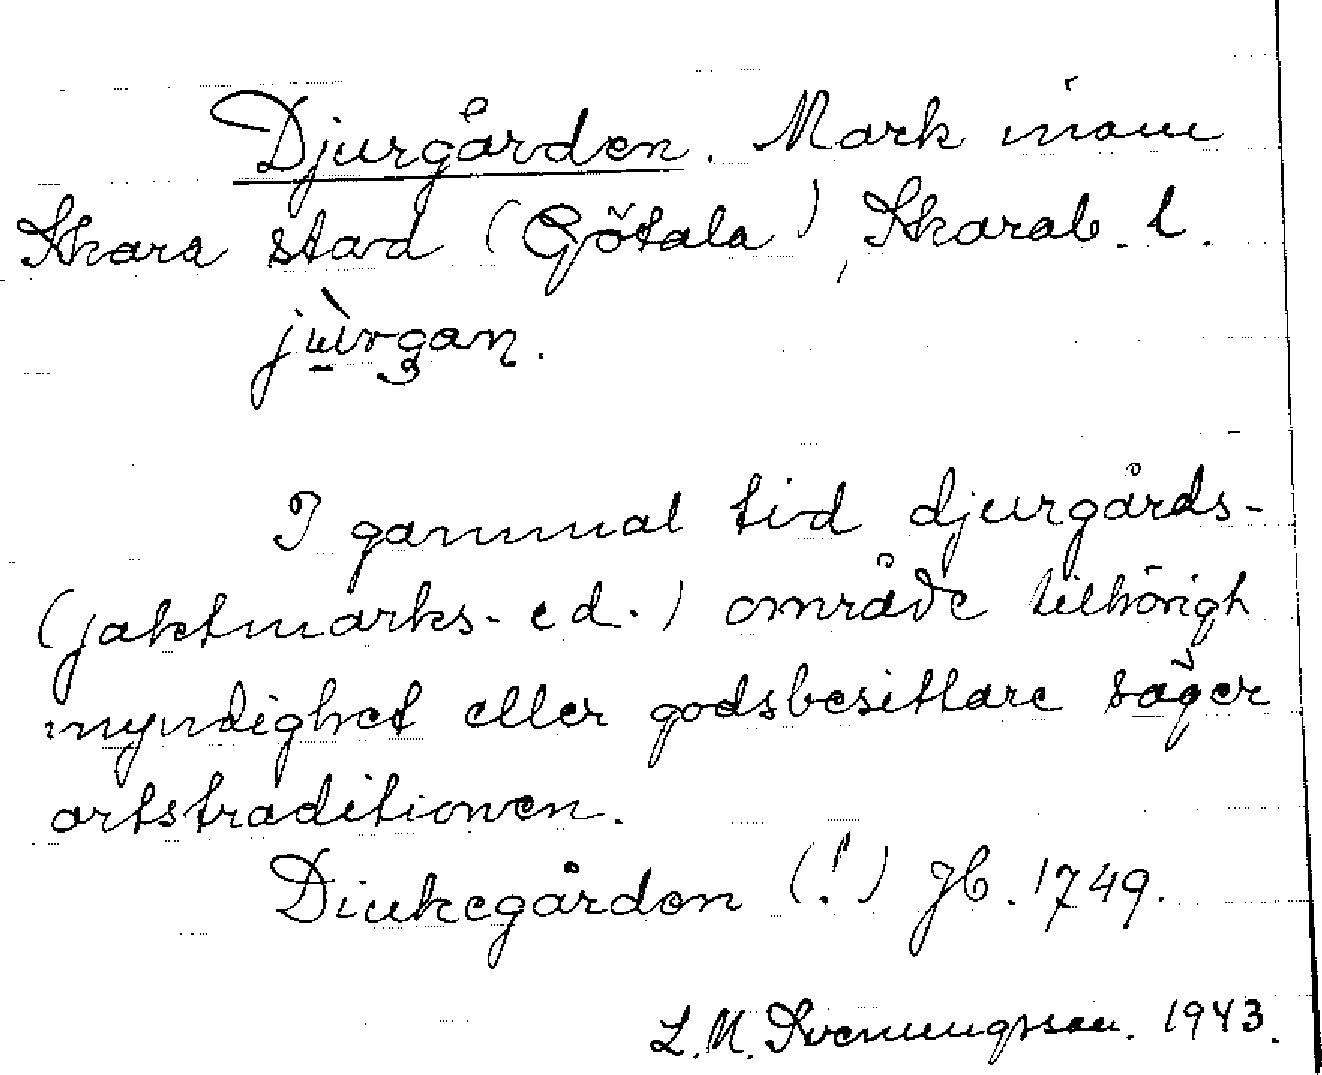 Djurgården. Mark inom
Skara stad (Götala), Skarab. l.
jùrgan.
I gammal tid djurgårds-
(jaktmarks- ed.) område tillhörigt
myndighet eller godsbesittare säger
ortstraditionen.
Diukegården (!) Jb. 1749.
L. M. Svenungsson. 1943.